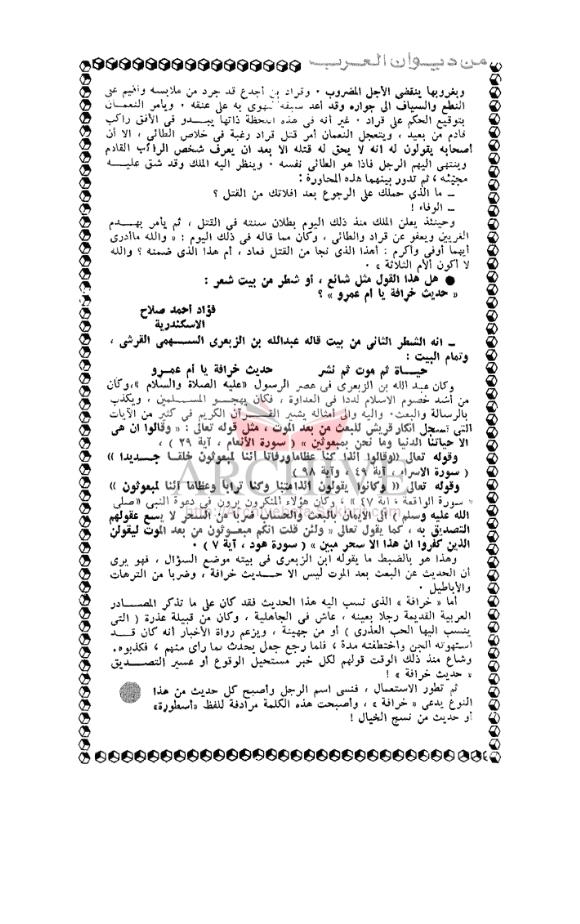 من ديوان العرب
وبغروبها ينقضى الأجل المضروب ٠ وقراد بن أجدع قد جرد من ملابسه وأقيم على
النطع والسياف الى جواره وقد أعد سيفه ليهوى به على عنقه ٠ ويأمر النعمان
بتوقيع الحكم على قراد ٠ غير أنه فى هذه اللحظة ذاتها يبدو فى الأفق راكب
قادم من بعيد ، ويتعجل النعمان أمر قتل قراد رغبة فى خلاص الطائى ، الا أن
أصحابه يقولون له انه لا يحق له قتله الا بعد ان يعرف شخص الراكب القادم
وينتهى اليهم الرجل فاذا هو الطائى نفسه ٠ وينظر اليه الملك وقد شق عليه
مجيئه ، ثم تدور بينهما هذه المحاورة :
ــ ما الذى حملك على الرجوع بعد افلاتك من القتل ؟
ــ الوفاء !
وحينئذ يعلن الملك منذ ذلك اليوم بطلان سنته فى القتل ، ثم يأمر بهدم
الغريين ويعفو عن قراد والطائى ، وكان مما قاله فى ذلك اليوم : « والله ما أدرى
أيهما أوفى وأكرم : أهذا الذى نجا من القتل فعاد ، أم هذا الذى ضمنه ؟ والله
لا أكون ألأم الثلاثة » ٠
● هل هذا القول مثل شائع ، أو شطر من بيت شعر :
« حديث خرافة يا أم عمرو » ؟
فؤاد أحمد صلاح
الاسكندرية
ــ انه الشطر الثانى من بيت قاله عبدالله بن الزبعرى السهمى القرشى ،
وتمام البيت :
حياة ثم موت ثم نشر حديث خرافة يا أم عمرو
وكان عبد الله بن الزبعرى فى عصر الرسول «عليه الصلاة والسلام» ،وكان
من أشد خصوم الاسلام لددا فى العداوة ، فكان يهجو المسلمين ، ويكذب
بالرسالة والبعث٠ واليه والى أمثاله يشير القرآن الكريم فى كثير من الآيات
التى تسجل انكار قريش للبعث من بعد الموت ، مثل قوله تعالى : «وقالوا ان هى
الا حياتنا الدنيا وما نحن بمبعوثين » ( سورة الأنعام ، آية ٢٩ ) ٠
وقوله تعالى ((وقالوا أئذا كنا عظاما ورفاتا أئنا لمبعوثون خلقا جديدا ))
( سورة الاسراء ، آية ٤٩ ، وآية ٩٨ )
وقوله تعالى (( وكانوا يقولون أئذا متنا وكنا ترابا وعظاما أئنا لمبعوثون ))
« سورة الواقعة ، آية ٤٧ » ، وكان هؤلاء المنكرون يرون فى دعوة النبى «صلى
الله عليه وسلم » الى الايمان بالبعث والحساب ضربا من السحر لا يسع عقولهم
التصديق به ، كما يقول تعالى «ولئن قلت انكم مبعوثون من بعد الموت ليقولن
الذين كفروا ان هذا الا سحر مبين » ( سورة هود ، آية ٧ ) ٠
وهذا هو بالضبط ما يقوله ابن الزبعرى فى بيته موضع السؤال ، فهو يرى
أن الحديث عن البعث بعد الموت ليس الا حديث خرافة ، وضربا من الترهات
والأباطيل ٠
أما « خرافة » الذى نسب اليه هذا الحديث فقد كان على ما تذكر المصادر
العربية القديمة رجلا بعينه ، عاش فى الجاهلية ، وكان من قبيلة عذرة ( التى
ينسب اليها الحب العذرى ) أو من جهينة ، ويزعم رواة الأخبار أنه كان قد
استهوته الجن واختطفته مدة ، فلما رجع جعل يحدث بما رأى منهم ، فكذبوه٠
وشاع منذ ذلك الوقت قولهم لكل خبر مستحيل الوقوع أو عسير التصديق
« حديث خرافة » !
ثم تطور الاستعمال ، فنسى اسم الرجل وأصبح كل حديث من هذا
النوع يدعى « خرافة » ، وأصبحت هذه الكلمة مرادفة للفظ «أسطورة»
أو حديث من نسج الخيال !
ARCHIVE